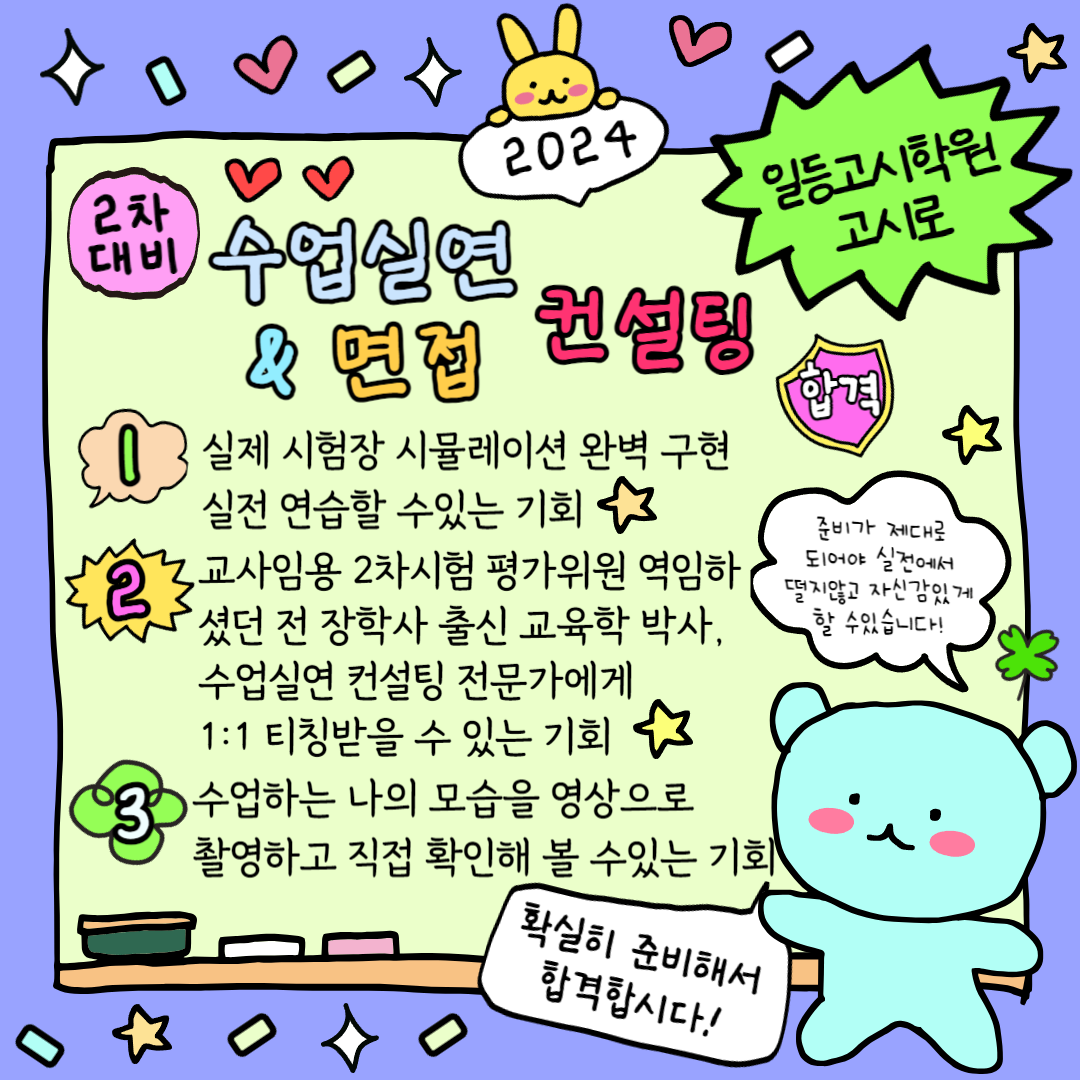 2024
일등고시학원
고시로
2차
대비
수업실연
& 면접
컨설팅
합격
1
실제 시험장 시뮬레이션 완벽 구현
실전 연습할 수있는 기회
2
교사임용 2차시험 평가위원 역임하
셨던 전 장학사 출신 교육학 박사,
수업실연 컨설팅 전문가에게
1:1 티칭받을 수 있는 기회
3
수업하는 나의 모습을 영상으로
촬영하고 직접 확인해 볼 수있는 기회
준비가 제대로
되어야 실전에서
떨지않고 자신감있게
할 수있습니다!
확실히 준비해서
합격합시다!